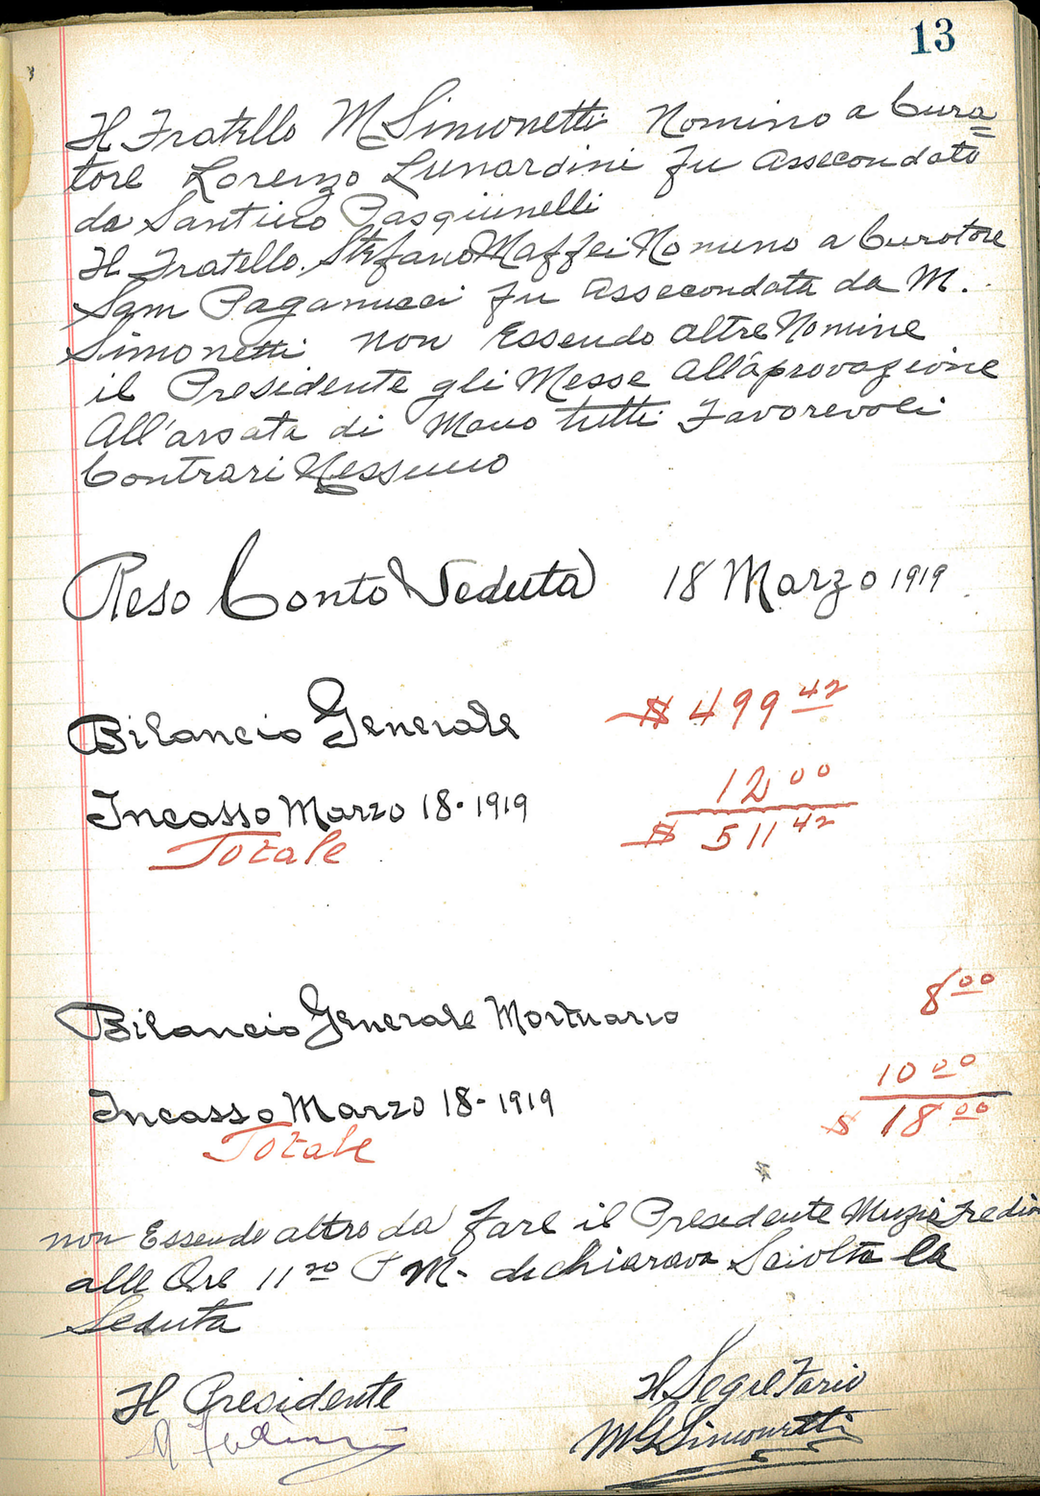 13
Il Fratello M Simonetti Nomino a Cura=
tore Lorenzo Lunardini fu assecondato
da Santino Pasquinelli
Il Fratello Stefano Maffei Nomino a Curotore
Sam Paganucci fu assecondata da M.
Simonetti non Essendo altre Nomine
il Presidente gli Messe all'aprovazione
All'arsata di Mano tutti Favorevoli
Contrari Nessuno
Reso Conto Seduta 18 Marzo 1919
Bilancio Generale $ 499 42
Incasso Marzo 18-1919 12 00
Totale $ 511 42
Bilancio Generale Mortuario 8 00
Incasso Marzo 18-1919 10 00
Totale $ 18 00
non Essendo altro da fare il Presidente Muzio
alle Ore 11 P M- dichiarava Sciolta la
Seduta
Il Presidente Il Segretario
M G Simonetti